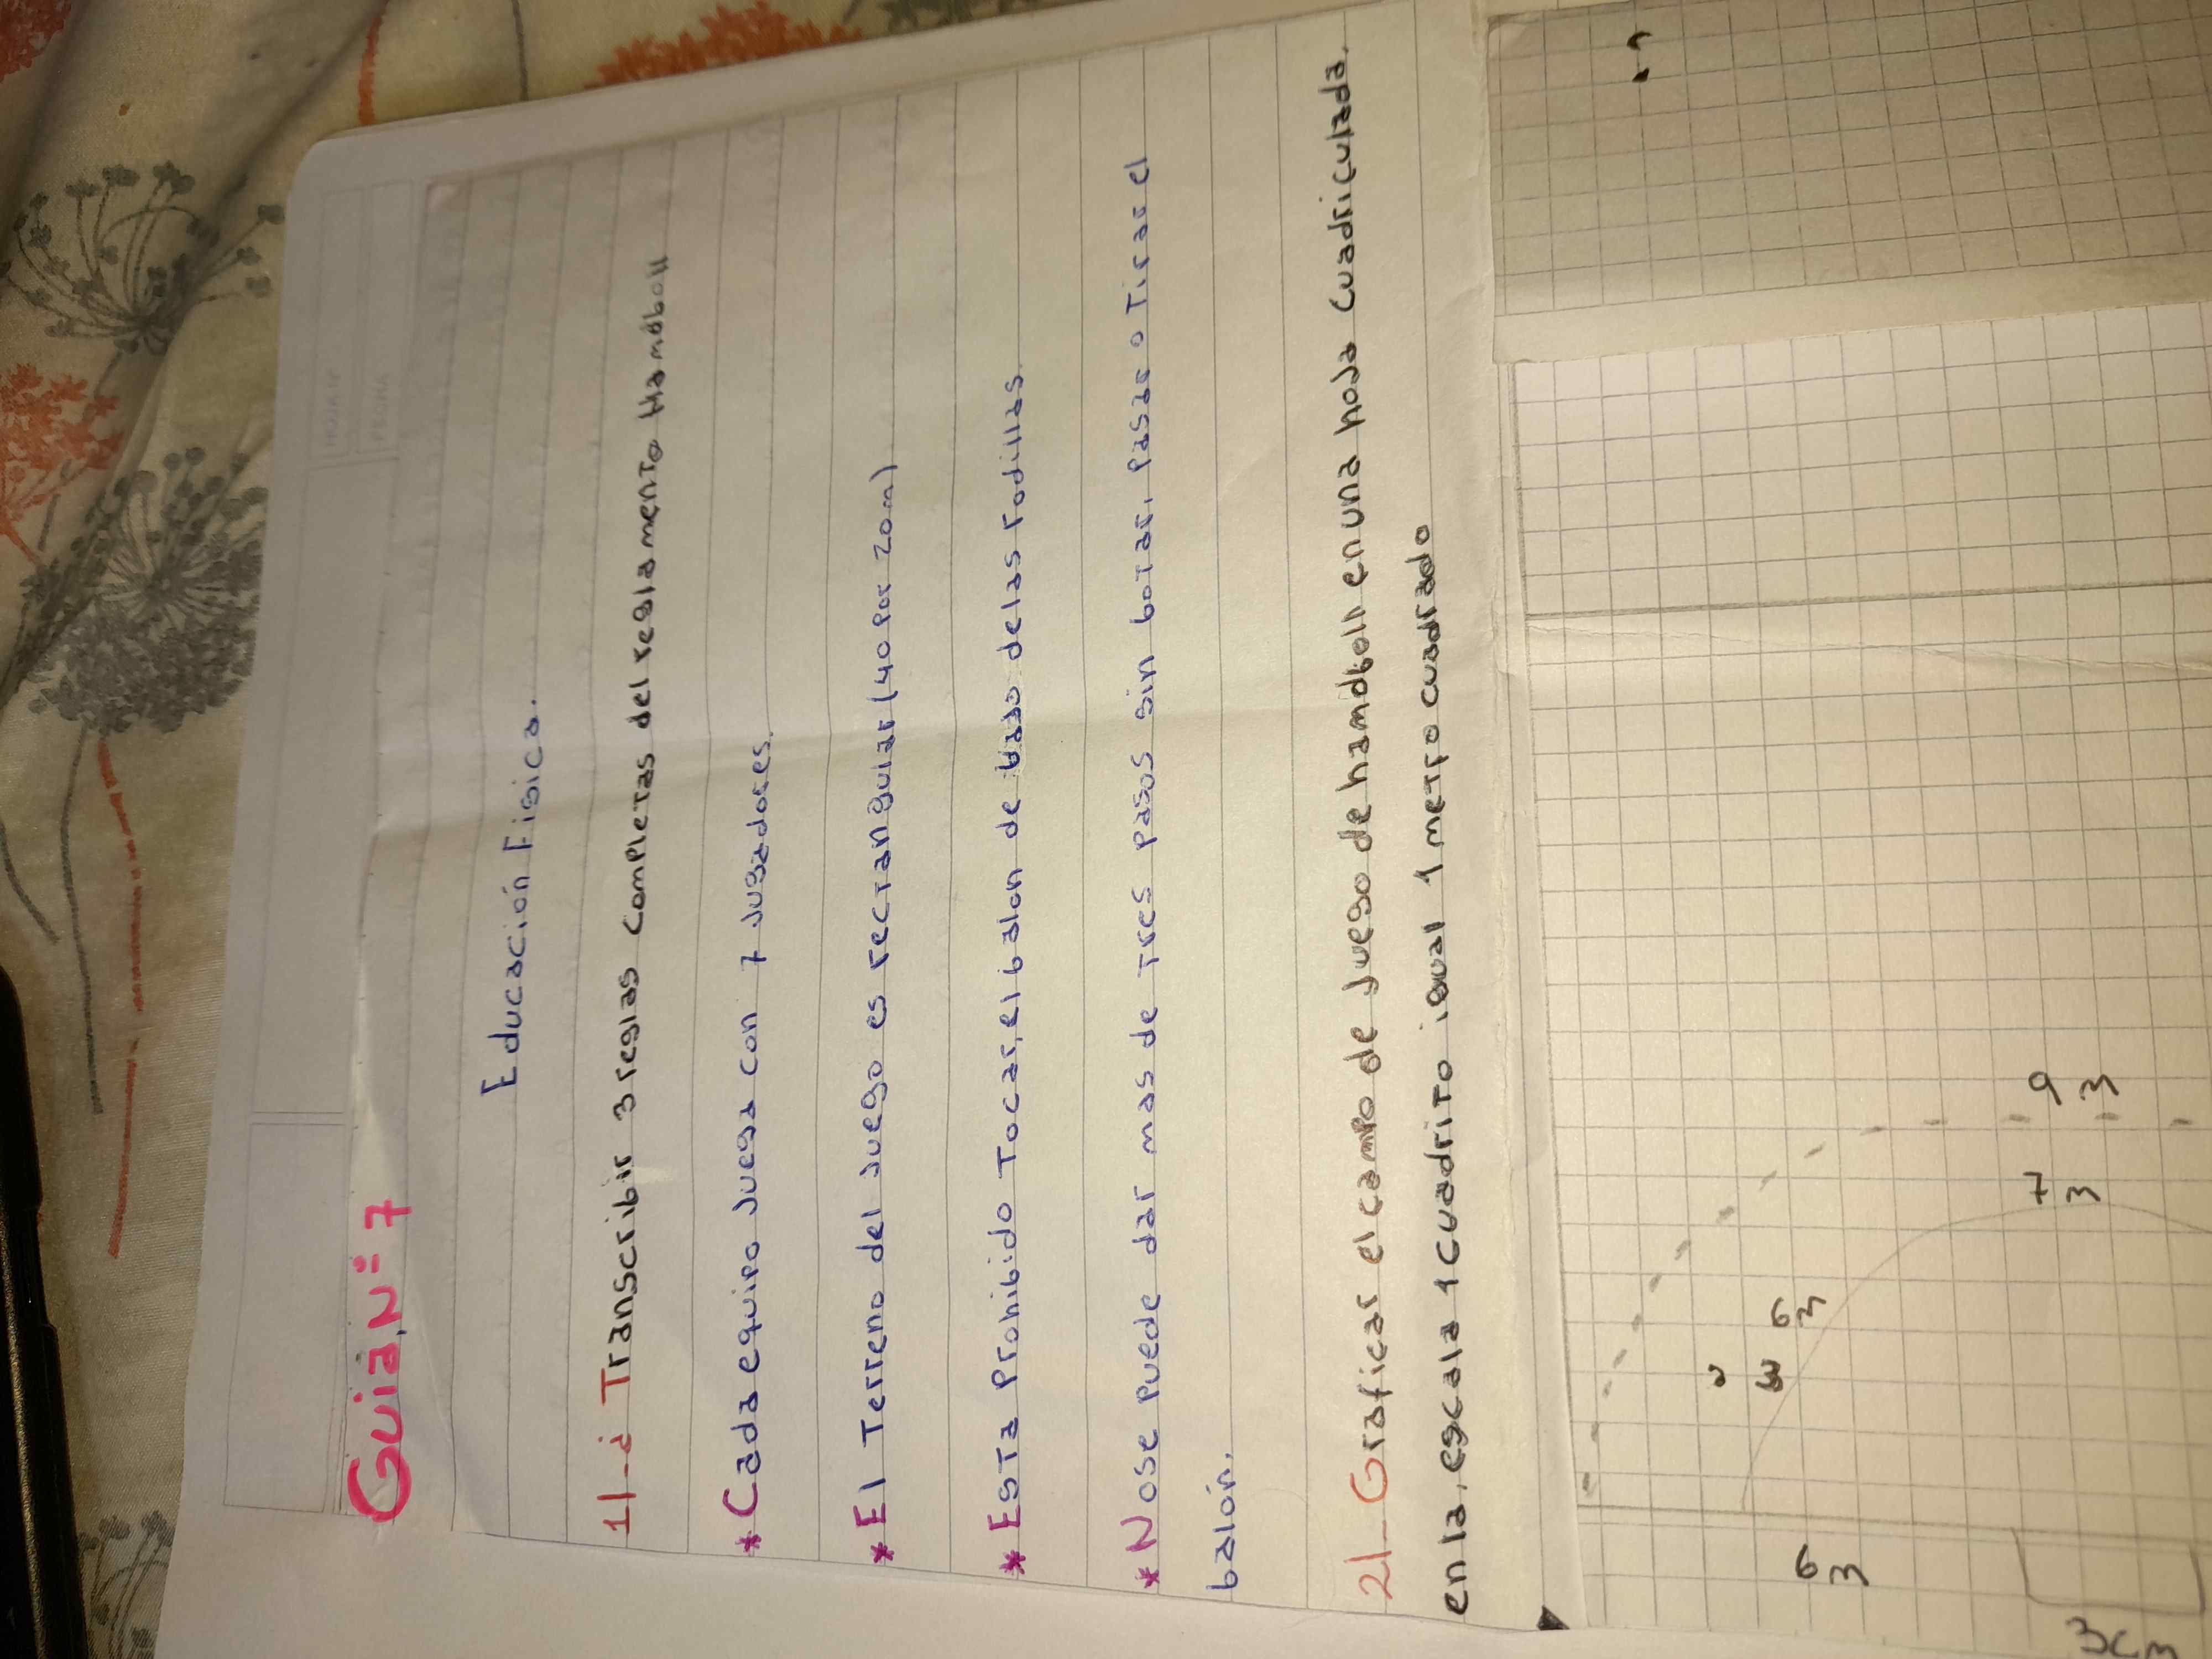 Guia, N° 7
Educación Fisica.
1)-¿ Transcribir 3 reglas completas del reglamento Hamboll
* Cada equipo Juega con 7 Jugadores.
* El Terreno del Juego es rectangular (40 Por 20m)
* Esta Prohibido Tocar, el balon de bajo delas rodillas.
* Nose Puede dar mas de Tres Pasos sin botar, Pasar o Tirar el
balón.
2)-Graficar el campo de Juego de hamdboll en una hoja cuadriculada.
en la, escala 1 Cuadrito igual 1 metro cuadrado
9 m
7 m
6 m
6 m